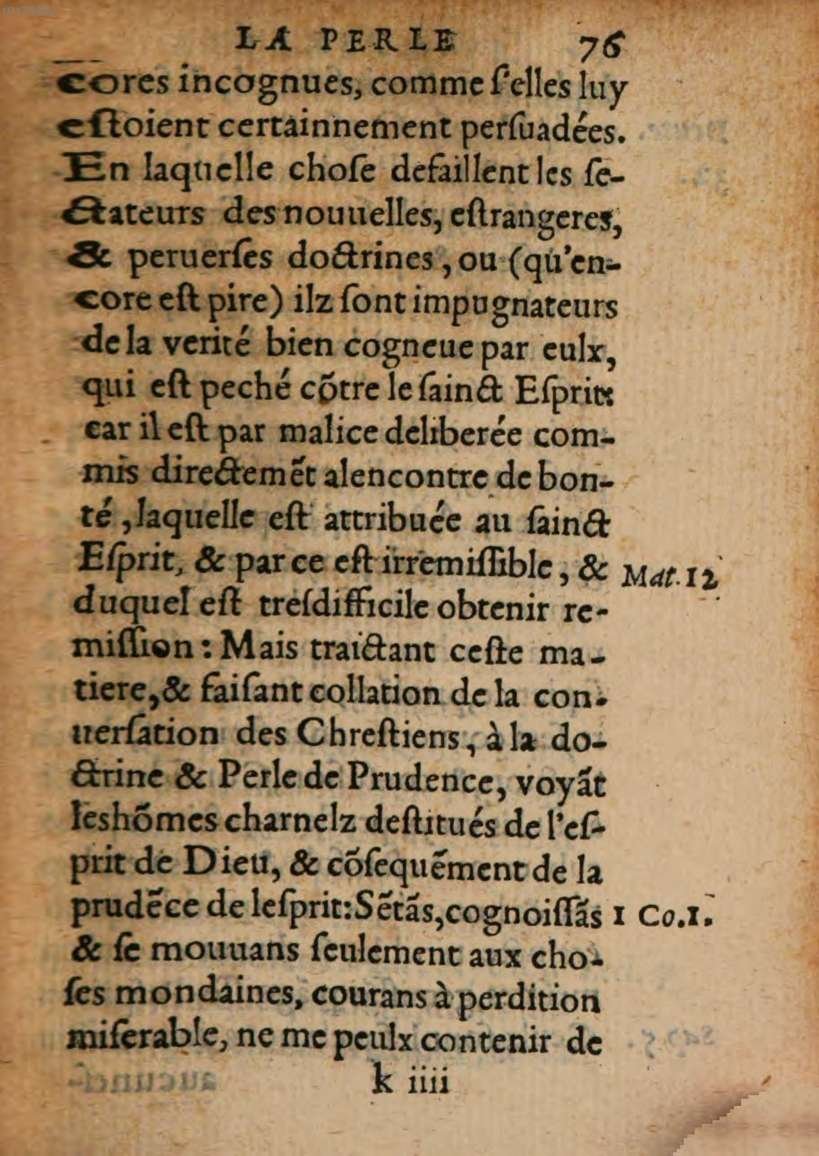 LA PERLE 76
cores incognues, comme ſ'elles luy
eſtoient certainnement perſuadées.
En laquelle choſe defaillent les ſe-
ctateurs des nouuelles, eſtrangeres,
& peruerſes doctrines, ou (qu'en-
core eſt pire) ilz ſont impugnateurs
de la verité bien cogneue par eulx,
qui eſt peché cõtre le ſainct Eſprit:
car il eſt par malice deliberée com-
mis directemẽt alencontre de bon-
té, laquelle eſt attribuée au ſainct
Eſprit, & par ce eſt irremiſſible, & Mat.12
duquel eſt treſdifficile obtenir re-
miſſion: Mais traictant ceſte ma-
tiere, & faiſant collation de la con-
uerſation des Chreſtiens, à la do-
ctrine & Perle de Prudence, voyãt
leshõmes charnelz deſtitués de l'eſ-
prit de Dieu, & cõſequẽment de la
prudẽce de leſprit: Sẽtãs, cognoiſſãs 1 Co.1.
& ſe mouuans ſeulement aux cho-
ſes mondaines, courans à perdition
miſerable, ne me peulx contenir de
k iiii